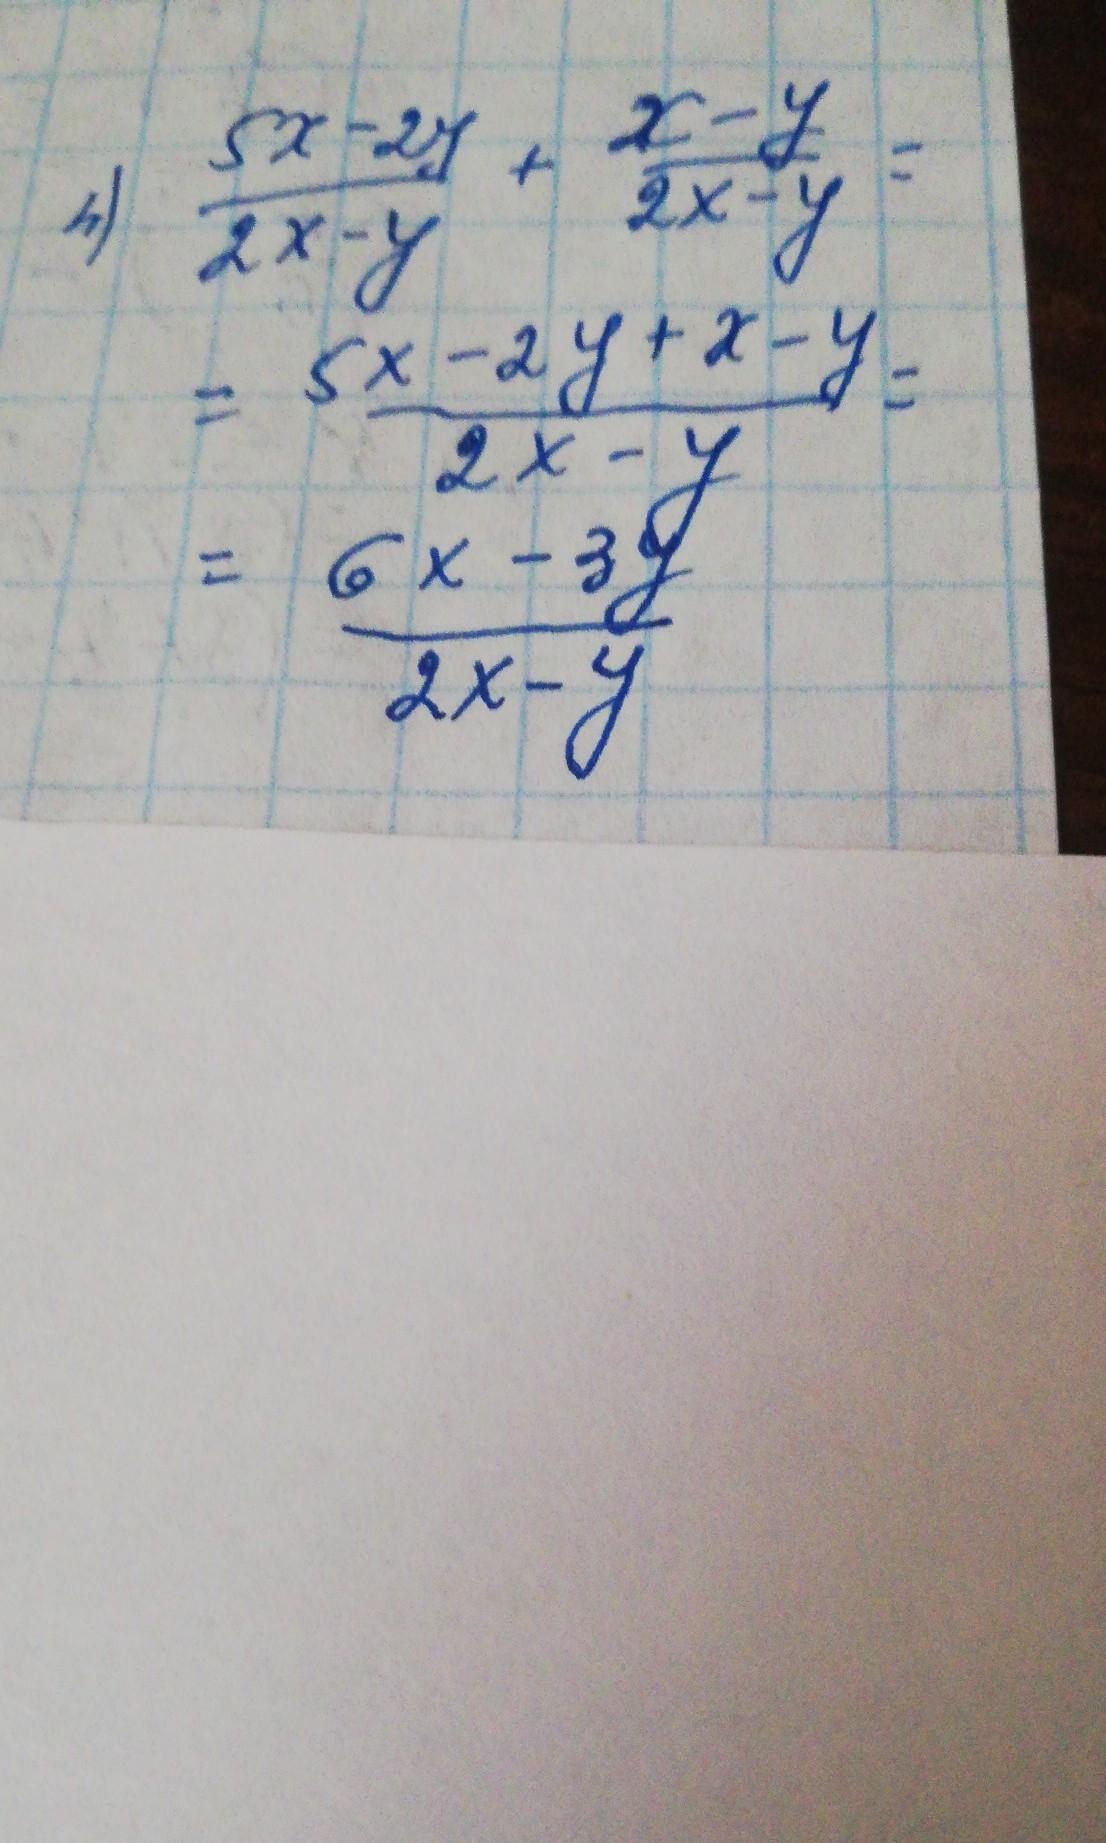 4) (5x-2y)/(2x-y) + (x-y)/(2x-y) =
= (5x-2y+x-y)/(2x-y) =
= (6x-3y)/(2x-y)